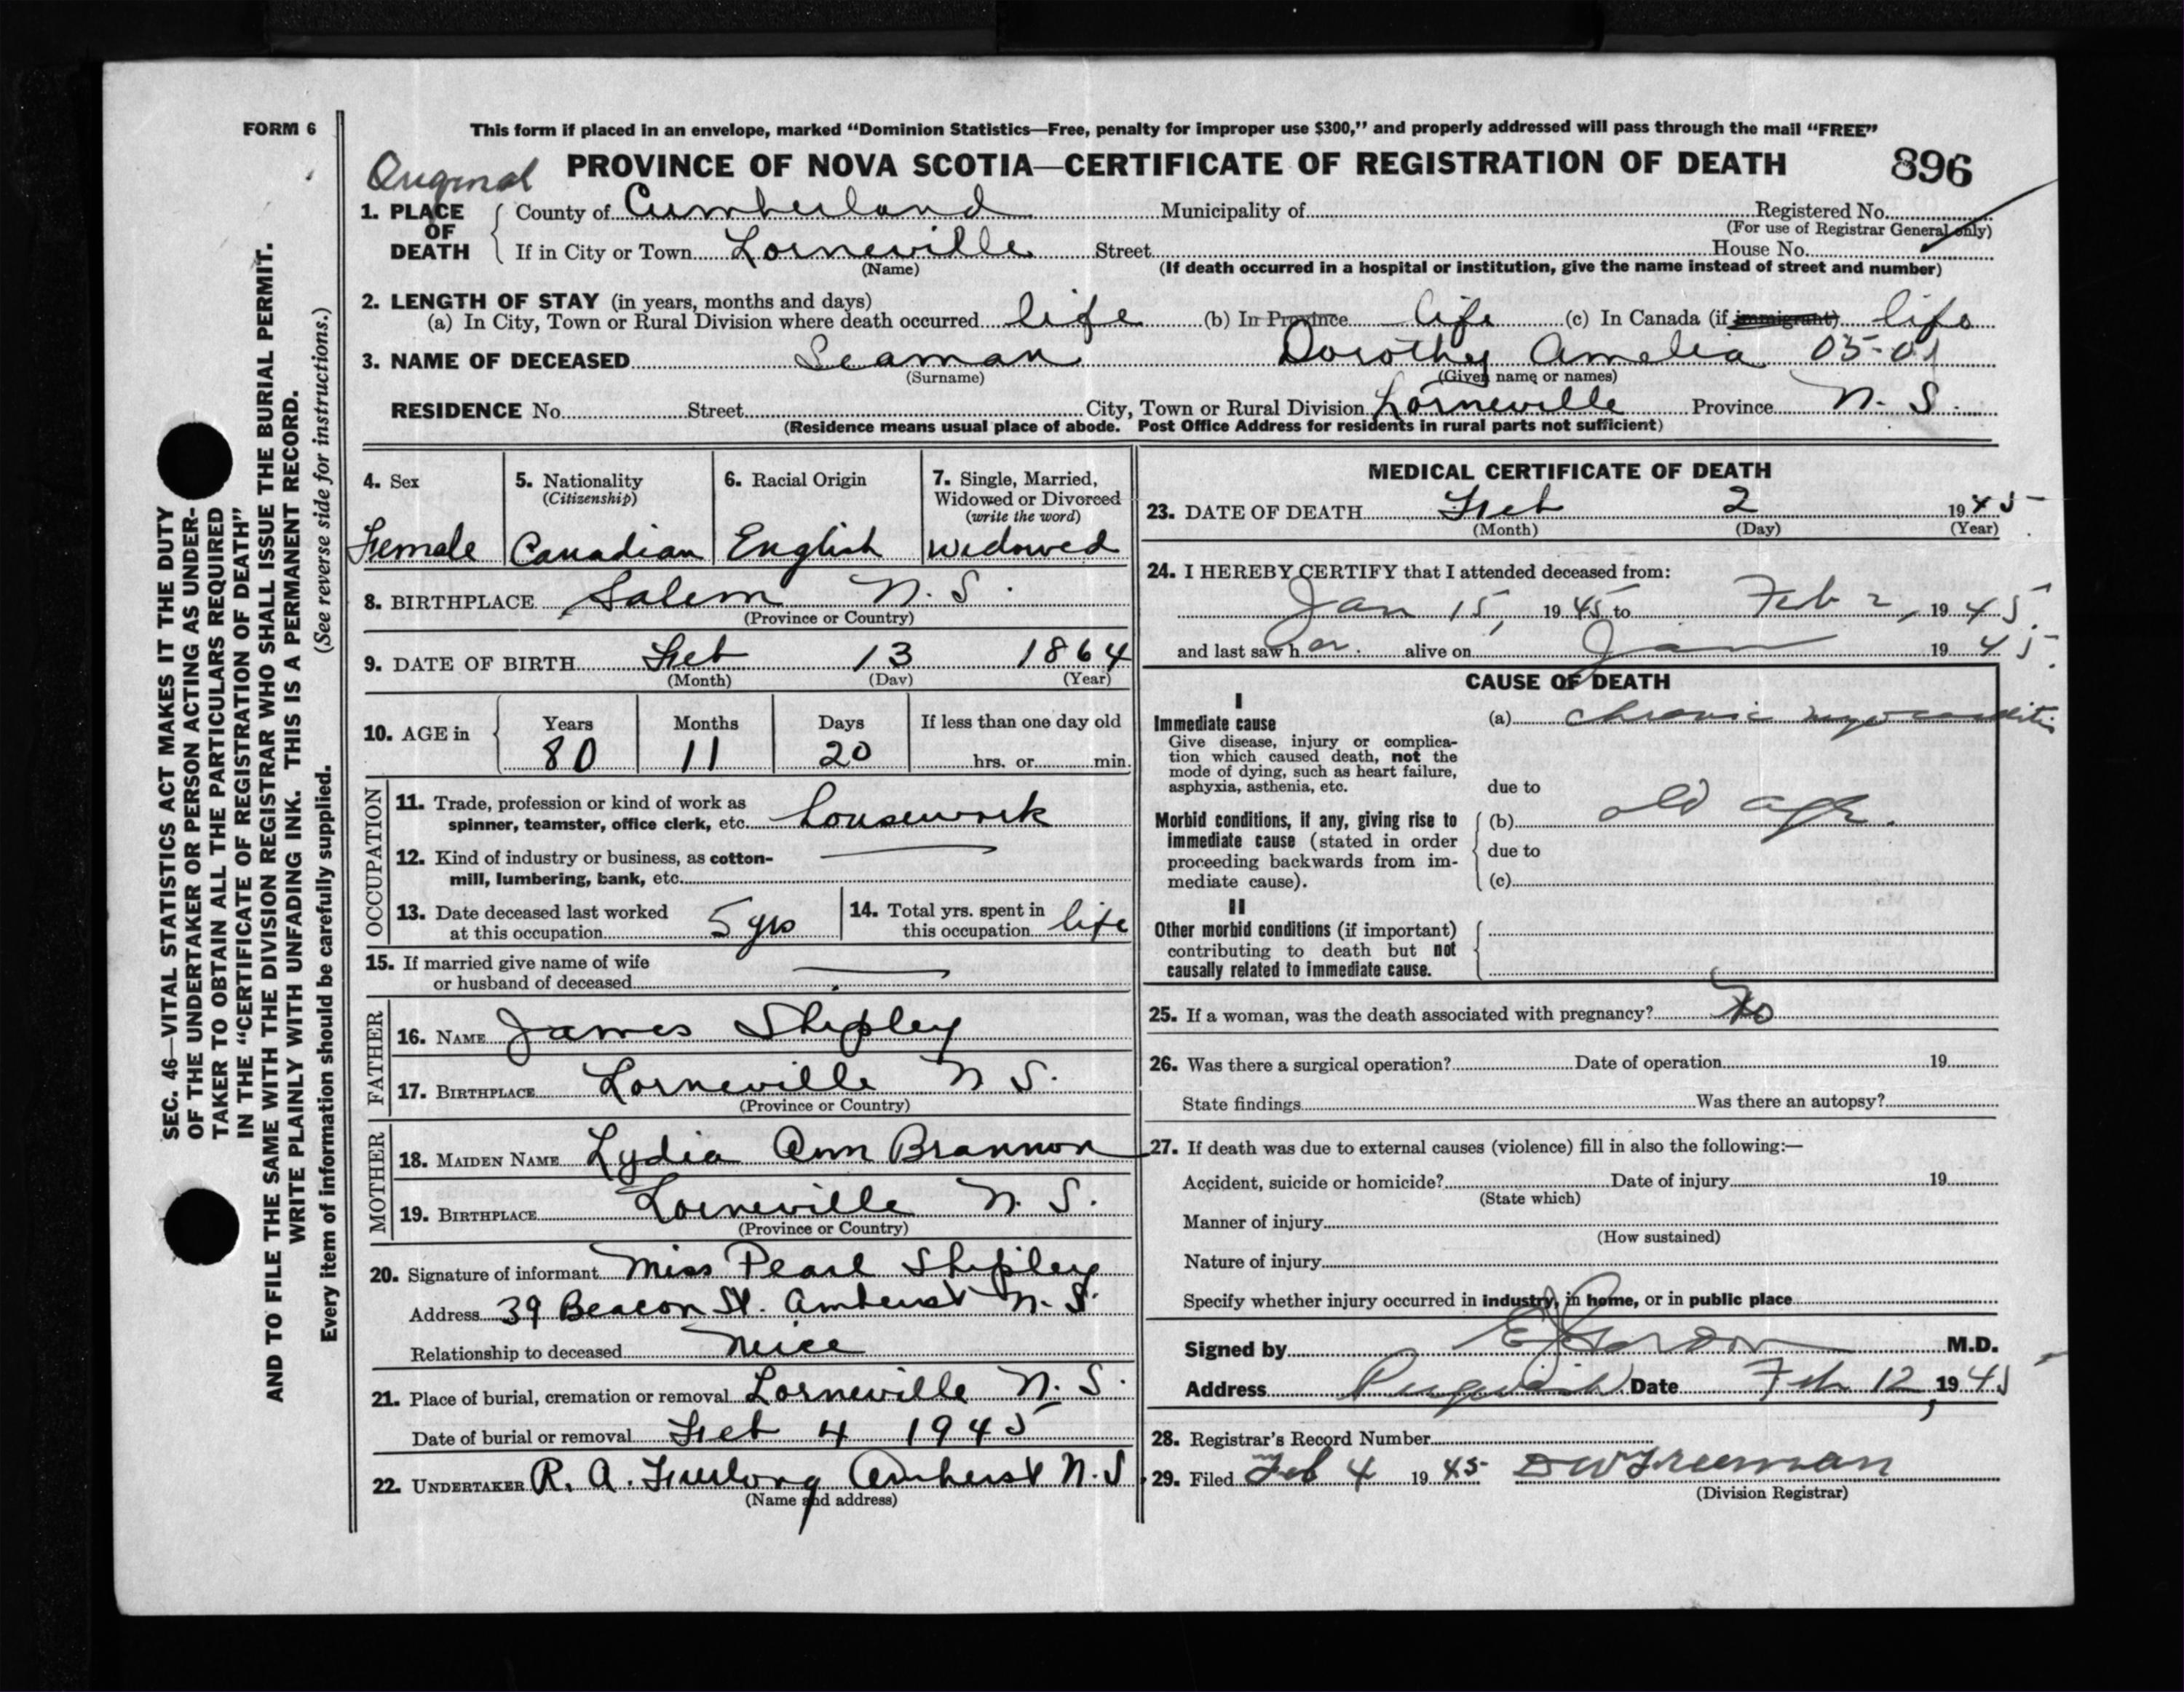 FORM 6
This form if placed in an envelope, marked “Dominion Statistics—Free, penalty for improper use $300,” and properly addressed will pass through the mail “FREE”
Original PROVINCE OF NOVA SCOTIA—CERTIFICATE OF REGISTRATION OF DEATH 896
1. PLACE OF DEATH County of Cumberland Municipality of Registered No.
(For use of Registrar General only)
If in City or Town Lorneville Street House No.
(Name) (If death occurred in a hospital or institution, give the name instead of street and number)
2. LENGTH OF STAY (in years, months and days)
(a) In City, Town or Rural Division where death occurred life (b) In Province life (c) In Canada (if immigrant) life
3. NAME OF DECEASED Seaman Dorothy Amelia 05-01
(Surname) (Given name or names)
RESIDENCE No. Street City, Town or Rural Division Lorneville Province N. S.
(Residence means usual place of abode. Post Office Address for residents in rural parts not sufficient)
4. Sex
Female
5. Nationality
(Citizenship)
Canadian
6. Racial Origin
English
7. Single, Married,
Widowed or Divorced
(write the word)
Widowed
8. BIRTHPLACE Salem N. S.
(Province or Country)
9. DATE OF BIRTH Feb 13 1864
(Month) (Day) (Year)
10. AGE in Years Months Days If less than one day old
80 11 20 hrs. or min.
OCCUPATION
11. Trade, profession or kind of work as
spinner, teamster, office clerk, etc. housework
12. Kind of industry or business, as cotton-
mill, lumbering, bank, etc.
13. Date deceased last worked
at this occupation 5 yrs
14. Total yrs. spent in
this occupation life
15. If married give name of wife
or husband of deceased
FATHER
16. NAME James Shipley
17. BIRTHPLACE Lorneville N S.
(Province or Country)
MOTHER
18. MAIDEN NAME Lydia Ann Brannon
19. BIRTHPLACE Lorneville N. S.
(Province or Country)
20. Signature of informant Miss Pearl Shipley
Address 39 Beacon St. Amherst N. S.
Relationship to deceased Neice
21. Place of burial, cremation or removal Lorneville N. S.
Date of burial or removal Feb 4 1945
22. UNDERTAKER R. A. Furlong Amherst N. S.
(Name and address)
MEDICAL CERTIFICATE OF DEATH
23. DATE OF DEATH Feb 2 1945
(Month) (Day) (Year)
24. I HEREBY CERTIFY that I attended deceased from:
Jan 15, 1945 to Feb 2, 1945
and last saw her alive on Jan 1945.
CAUSE OF DEATH
I
Immediate cause
Give disease, injury or complica-
tion which caused death, not the
mode of dying, such as heart failure,
asphyxia, asthenia, etc.
(a) chronic myocarditis
due to
Morbid conditions, if any, giving rise to
immediate cause (stated in order
proceeding backwards from im-
mediate cause).
(b) old age.
due to
(c)
II
Other morbid conditions (if important)
contributing to death but not
causally related to immediate cause.
25. If a woman, was the death associated with pregnancy? No
26. Was there a surgical operation? Date of operation 19
State findings Was there an autopsy?
27. If death was due to external causes (violence) fill in also the following:—
Accident, suicide or homicide? Date of injury 19
(State which)
Manner of injury
(How sustained)
Nature of injury
Specify whether injury occurred in industry, in home, or in public place
Signed by M.D.
Address Pugwash Date Feb 12, 1945
28. Registrar's Record Number
29. Filed Feb 4 1945 D W Freeman
(Division Registrar)
SEC. 46—VITAL STATISTICS ACT MAKES IT THE DUTY
OF THE UNDERTAKER OR PERSON ACTING AS UNDER-
TAKER TO OBTAIN ALL THE PARTICULARS REQUIRED
IN THE “CERTIFICATE OF REGISTRATION OF DEATH”
AND TO FILE THE SAME WITH THE DIVISION REGISTRAR WHO SHALL ISSUE THE BURIAL PERMIT.
WRITE PLAINLY WITH UNFADING INK. THIS IS A PERMANENT RECORD.
Every item of information should be carefully supplied. (See reverse side for instructions.)